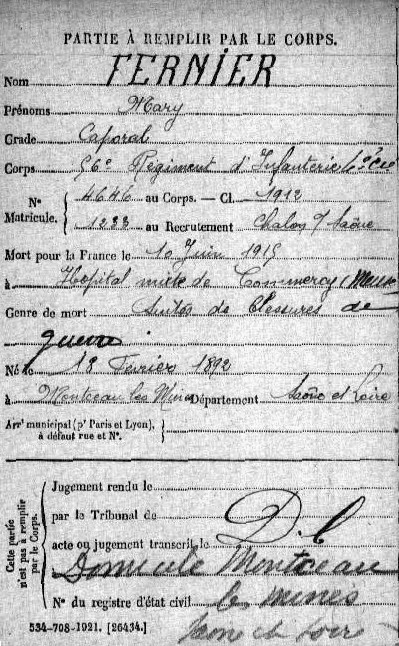 PARTIE À REMPLIR PAR LE CORPS.
Nom FERNIER
Prénoms Mary
Grade Caporal
Corps 56e Régiment d'Infanterie 4e Cie
N° Matricule. 4646 au Corps. — Cl. 1912
1233 au Recrutement Chalon s/ Saône
Mort pour la France le 10 Juin 1915
à Hopital mixte de Commercy (Meuse
Genre de mort Suites de blessures de
guerre
Né le 18 Fevrier 1892
à Montceau les Mines Département Saône et Loire
Arrt municipal (pr Paris et Lyon),
à défaut rue et N°.
Cette partie n'est pas à remplir par le Corps.
Jugement rendu le
par le Tribunal de
acte ou jugement transcrit le D. C
Domicile Montceau
N° du registre d'état civil les mines
Saone et Loire
534-708-1921. [26434.]